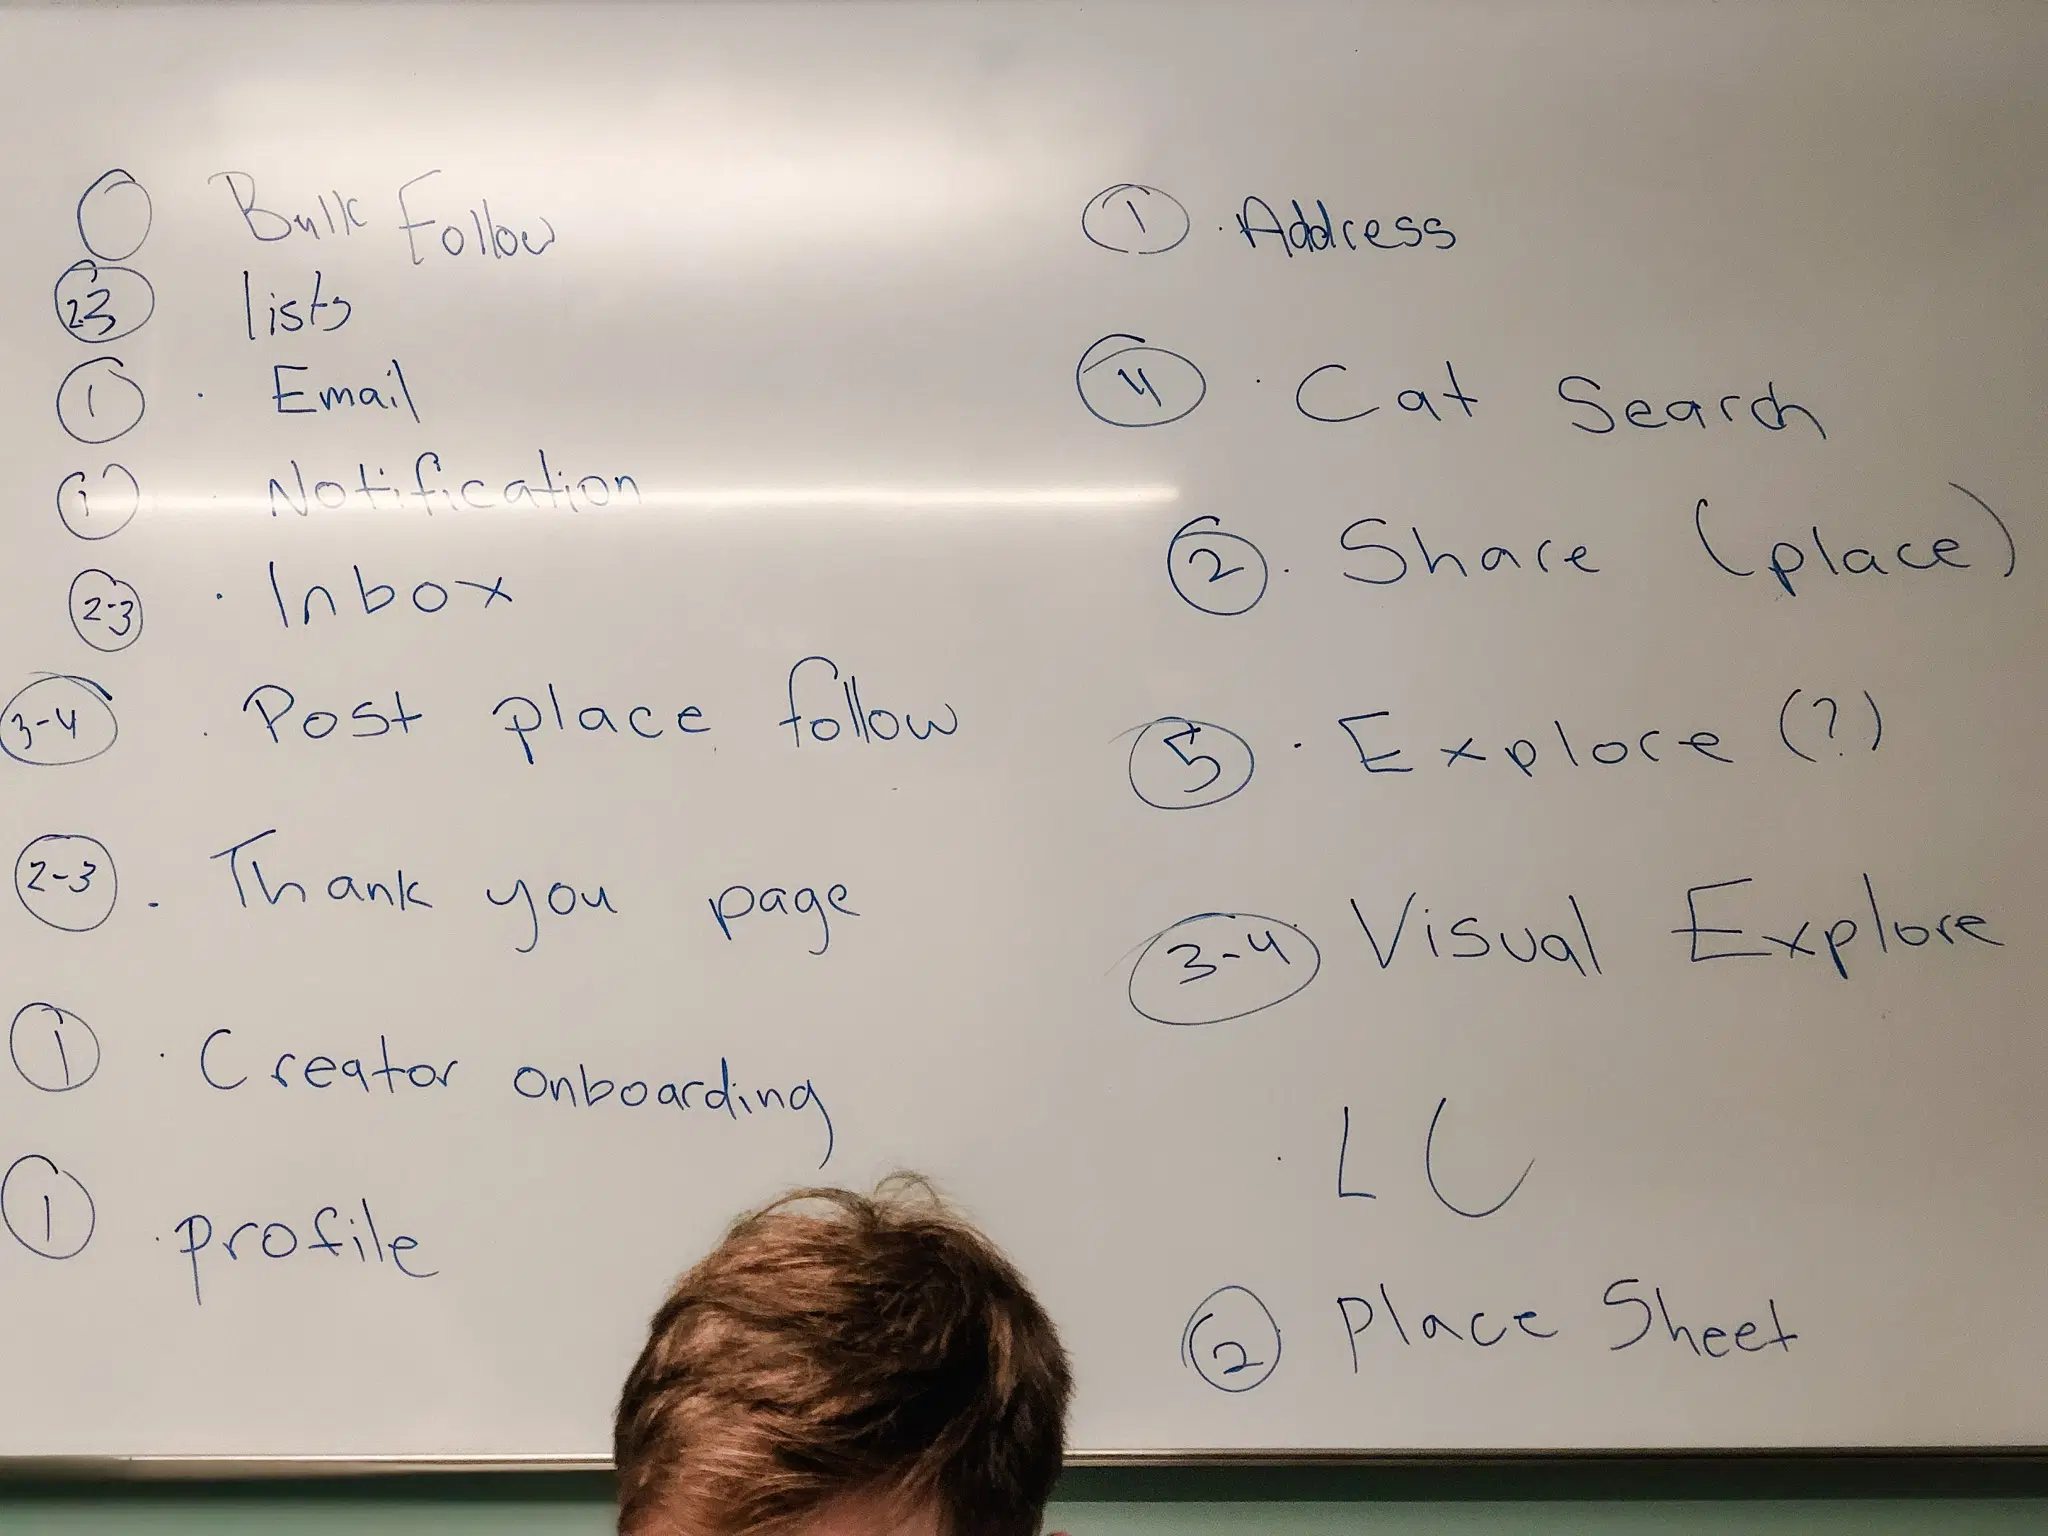 Bulk Follow
23 lists
1 · Email
1 · Notification
2-3 · Inbox
3-4 · Post place follow
2-3 · Thank you page
1 · Creator onboarding
1 · profile
1 · Address
4 · Cat Search
2 · Share (place)
5 · Explore (?)
3-4 · Visual Explore
· LC
2 Place Sheet